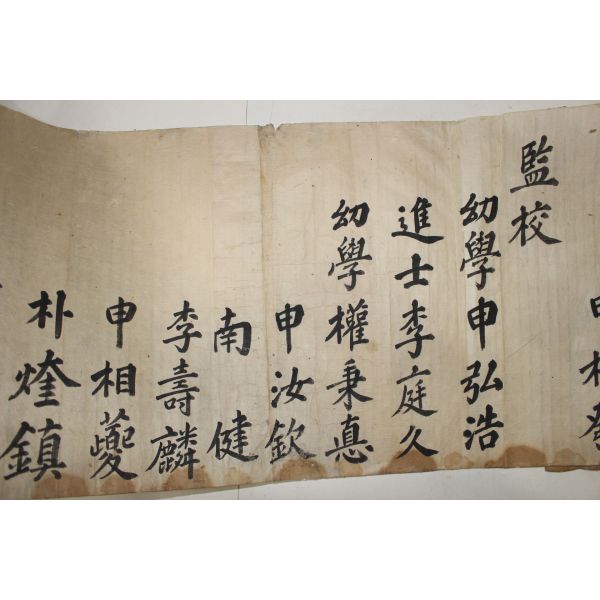 監校
幼學申弘浩
進士李庭久
幼學權秉惪
申汝欽
南健
李壽麟
申相夔
朴煃鎮